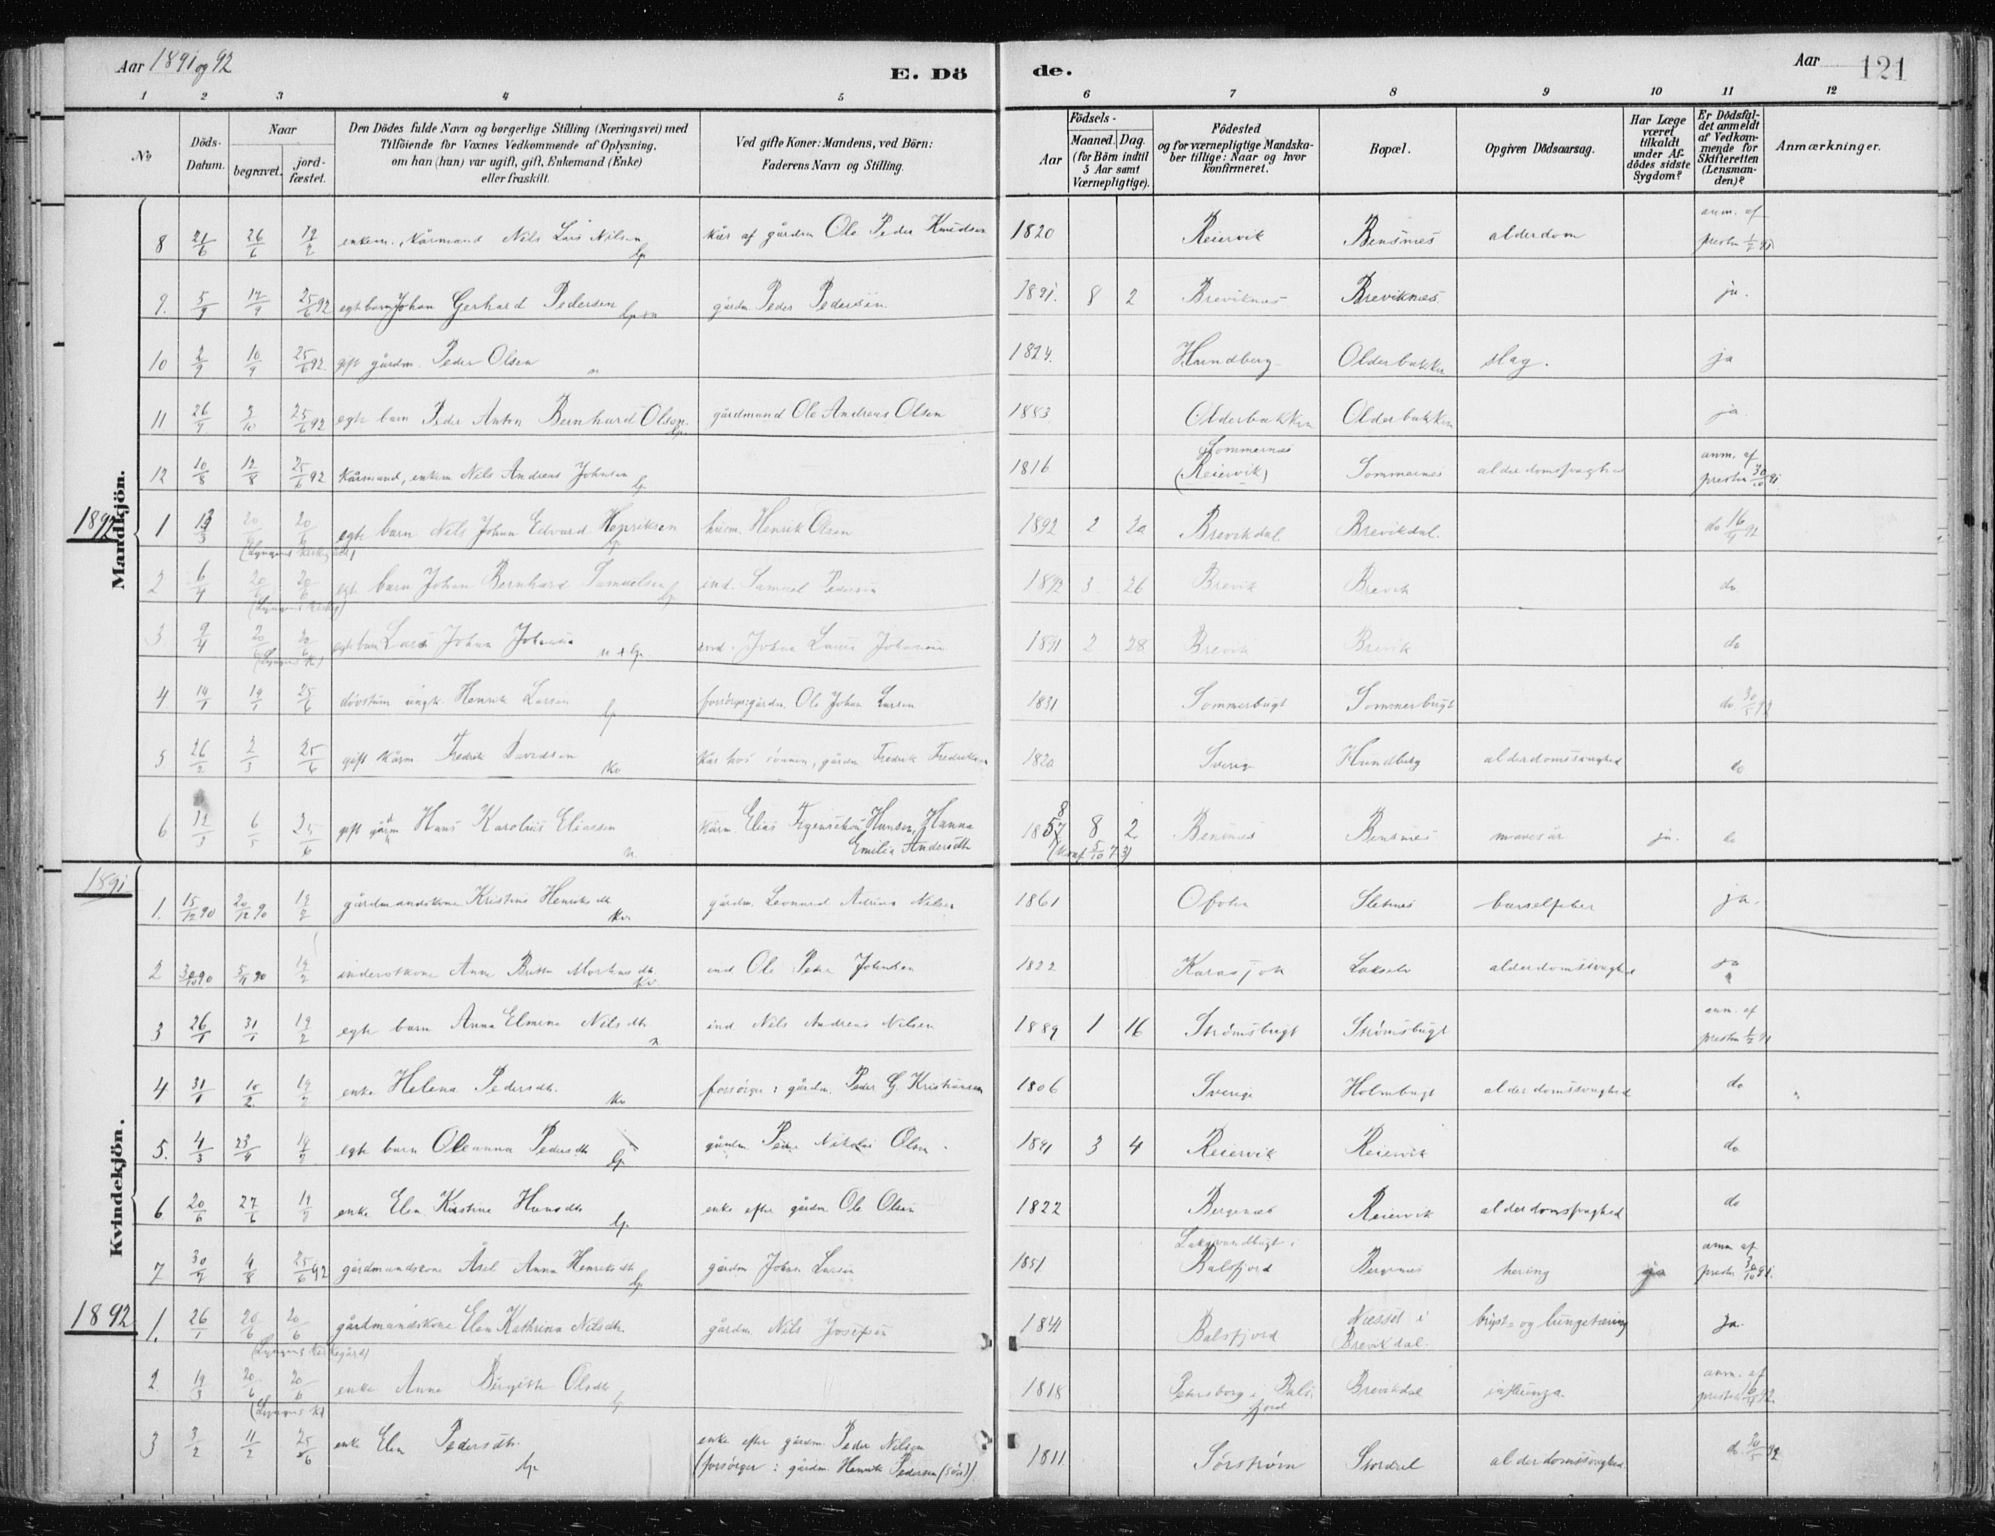 Aar 1891 og 92
E. Dö
de.
Aar 121
1 2 3 4 5 6 7 8 9 10 11 12
No
Döds-Datum.
Naar
begravet.
jord-fæstet.
Den Dödes fulde Navn og borgerlige Stilling (Næringsvei) med
Tilföiende for Voxnes Vedkommende af Oplysning,
om han (hun) var ugift, gift, Enkemand (Enke)
eller fraskilt.
Ved gifte Koner: Mandens, ved Börn:
Faderens Navn og Stilling.
Födsels-
Aar
Maaned. Dag.
(for Börn indtil
5 Aar samt
Værnepligtige).
Födested
og for værnepligtige Mandska-
ber tillige: Naar og hvor
konfirmeret.
Bopæl.
Opgiven Dödsaarsag.
Har Læge
været
tilkaldt
under Af-
dödes sidste
Sygdom?
Er Dödsfal-
det anmeldt
af Vedkom-
mende for
Skifteretten
(Lensman-
den)?
Anmærkninger.
Mandkjön.
8 21/6 26/6 12/2 enkem., kårmand Nils Lars Nilsen lp kår af gården Ole Peder Knudsen 1820 Reiervik Bensnes alderdom anm. af presten 1/2 91
9. 5/9 12/9 25/6 92 egte barn Johan Gerhard Pedersen gårdm. Peder Pedersen 1891. 8 2 Breviknes Breviknes ja.
10 2/9 10/9 25/6 92. gift gårdm. Peder Olsen n 1824. Hundberg Olderbakken slag. ja
11 26/9 3/10 25/6 92 egte barn Peder Anton Bernhard Olsen. lp. gårdmand Ole Andreas Olsen 1883 Olderbakken Olderbakken ja.
12 10/8 12/8 25/6 92 Kårmand, enkem Nils Andreas Johnsen lp. 1816 Sommernes (Reiervik) Sommernes alderdomssvaghed anm. af presten 30/10 91
1892
1 13/3 20/6 20/6 egte barn Nils Johan Edvard Henriksen lp husm. Henrik Olsen 1892 2 20 Brevikdal Brevikdal. do 16/4 92
2 6/4 20/6 20/6 egte barn Johan Bernhard Samuelsen lp ind. Samuel Pedersen 1892 3 26 Brevik Brevik do
3 9/4 20/6 20/6 egte barn Lars Johan Johansen n + lp. Johan Johansen 1891 2 28 Brevik Brevik do
4 14/1 19/1 25/6 døvstum ungk. Henrik Larsen lp forsörger: gårdm. Ole Johan Larsen 1831 Sommerbugt Sommerbugt do 30/5 92
5 26/2 2/3 25/6 gift kårm. Fredrik Davidsen kv kår hos sönnen, gårdm Fredrik Fredriksen 1820 Sverige Hundberg alderdomssvaghed do
6 12/3 6/5 25/6 gift gårdm Hans Karolius Eliassen n kårm. Elias Hansen, Hanna Emilia Andersdtr 8 2 (konf 5/10 73) Bensnes Bensnes mavesår ja. do
1891.
Kvindekjön.
1. 15/12 90 20/12 90 12/2 gårdmandskone Kristine Henriksdtr kv. gårdm. Leonard Adrian Nilsen 1861 Ofoten Sletnes barselfeber ja.
2 90 90 12/2 inderstkone Anne Britta Mortensdtr kv. ind Ole Peder Johnsen 1822 Karasjok Lakselv alderdomssvaghed
3 26/1 31/1 12/2 egte barn Anna Elmine Nilsdtr n ind Nils Andreas Nilsen 1889 1 16 Strömsbugt Strömsbugt anm. af presten 1/2 91
4 31/1 10/2 12/2 enke Helena Pedersdtr. kv forsörger: gårdm. Peder G. Kristiansen 1806 Sverige Holmbugt alderdomssvaghed do
5. 4/3 23/4 12/2 egte barn Oleanna Pedersdtr lp gårdm. Peder Nikolai Olsen. 1891 3 4 Reiervik Reiervik do
6 20/6 27/6 12/2 enke Elen Kristine Hansdtr lp enke efter gårdm Ole Olsen 1822 Bergenes Reiervik alderdomssvaghed do
7 30/7 4/8 25/6 92 gårdmandskone Åsel Anna Henriksdtr lp gårdm Johan Larsen 1851 Laksvandbugt i Balsfjord Bergenes tæring ja anm. af presten 30/10 91.
1892
1. 26/1 20/6 20/6 gårdmandskone Elen Kathrina Nilsdtr. gårdm. Nils Josefsen 1841 Balsfjord Næsset i Brevikdal. bryst- og lungetæring ja.
2. 19/3 20/6 20/6 enke Anne Birgitte Olsdtr lp 1818 Petersborg i Balsfjord Brevikdal influenza anm. af presten 16/4 92
3 3/2 11/2 25/6 enke Elen Pedersdtr. lp. enke efter gårdm. Peder Nilsen
(forsörger: gårdm. Henrik Pedersen (sön)) 1811 Sörström Stordal alderdomssvaghed. do 30/5 92